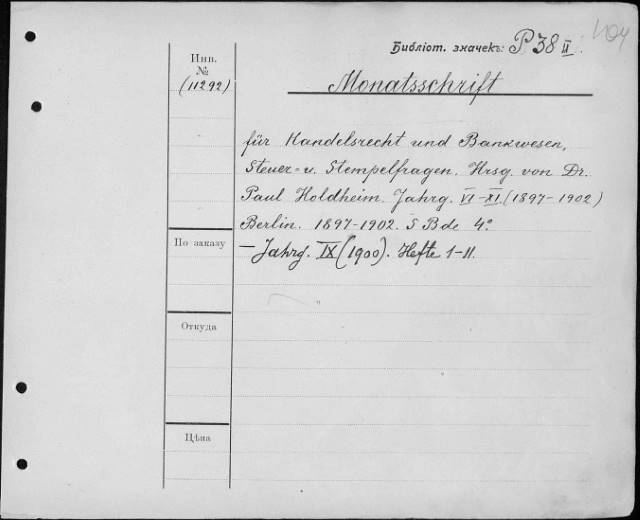 Библіот. значекъ: P 38 II.
Инв.
№
(11292)
Monatsschrift
für Handelsrecht und Bankwesen,
Steuer= u. Stempelfragen. Hrsg. von Dr.
Paul Holdheim. Jahrg. VI-XI. (1897-1902)
Berlin. 1897-1902. 5 Bde 4°
— Jahrg. IX (1900). Hefte 1-11.
По заказу
Откуда
Цѣна